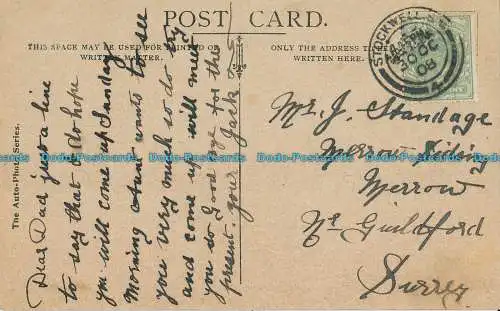 POST CARD.
THIS SPACE MAY BE USED FOR PRINTED OR
WRITTEN MATTER.
ONLY THE ADDRESS TO BE
WRITTEN HERE.
The Auto-Photo Series.
Dear Dad just a line
to say that I do hope
you will come up Sunday
morning wants to see
you very much so do try
and come up & will meet
you so Good bye for the
present. your Jack
STOCKWELL S
OC
08
Mr. J. Standage
Merrow Siding
Merrow
Nr Guildford
Surrey
Dodo-Postcards.com